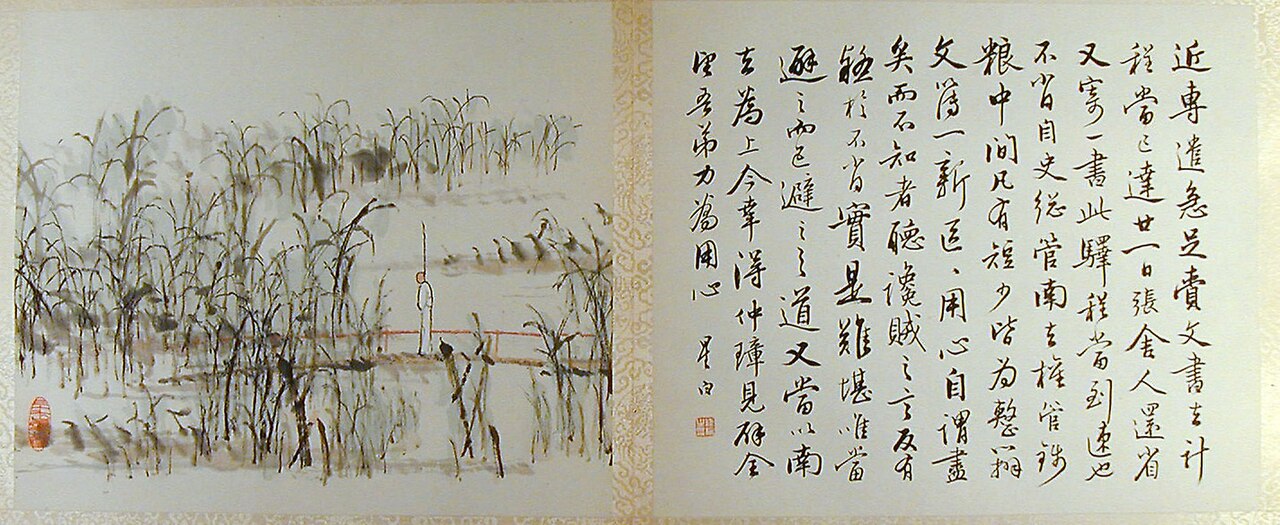 近專遣急足賫文書去計
程當已達廿一日張舍人還省
又寄一書此驛程當到速也
不肖自史総管南去権管錢
粮中間凡有短少皆为整辦
文簿一新区、用心自謂盡
矣而不知者聴讒賊之言反有
疑於不肖實是難堪唯當
避之而已避之之道又當以南
去為上今幸淂仲璋見辟全
望吾弟力為用心 星白